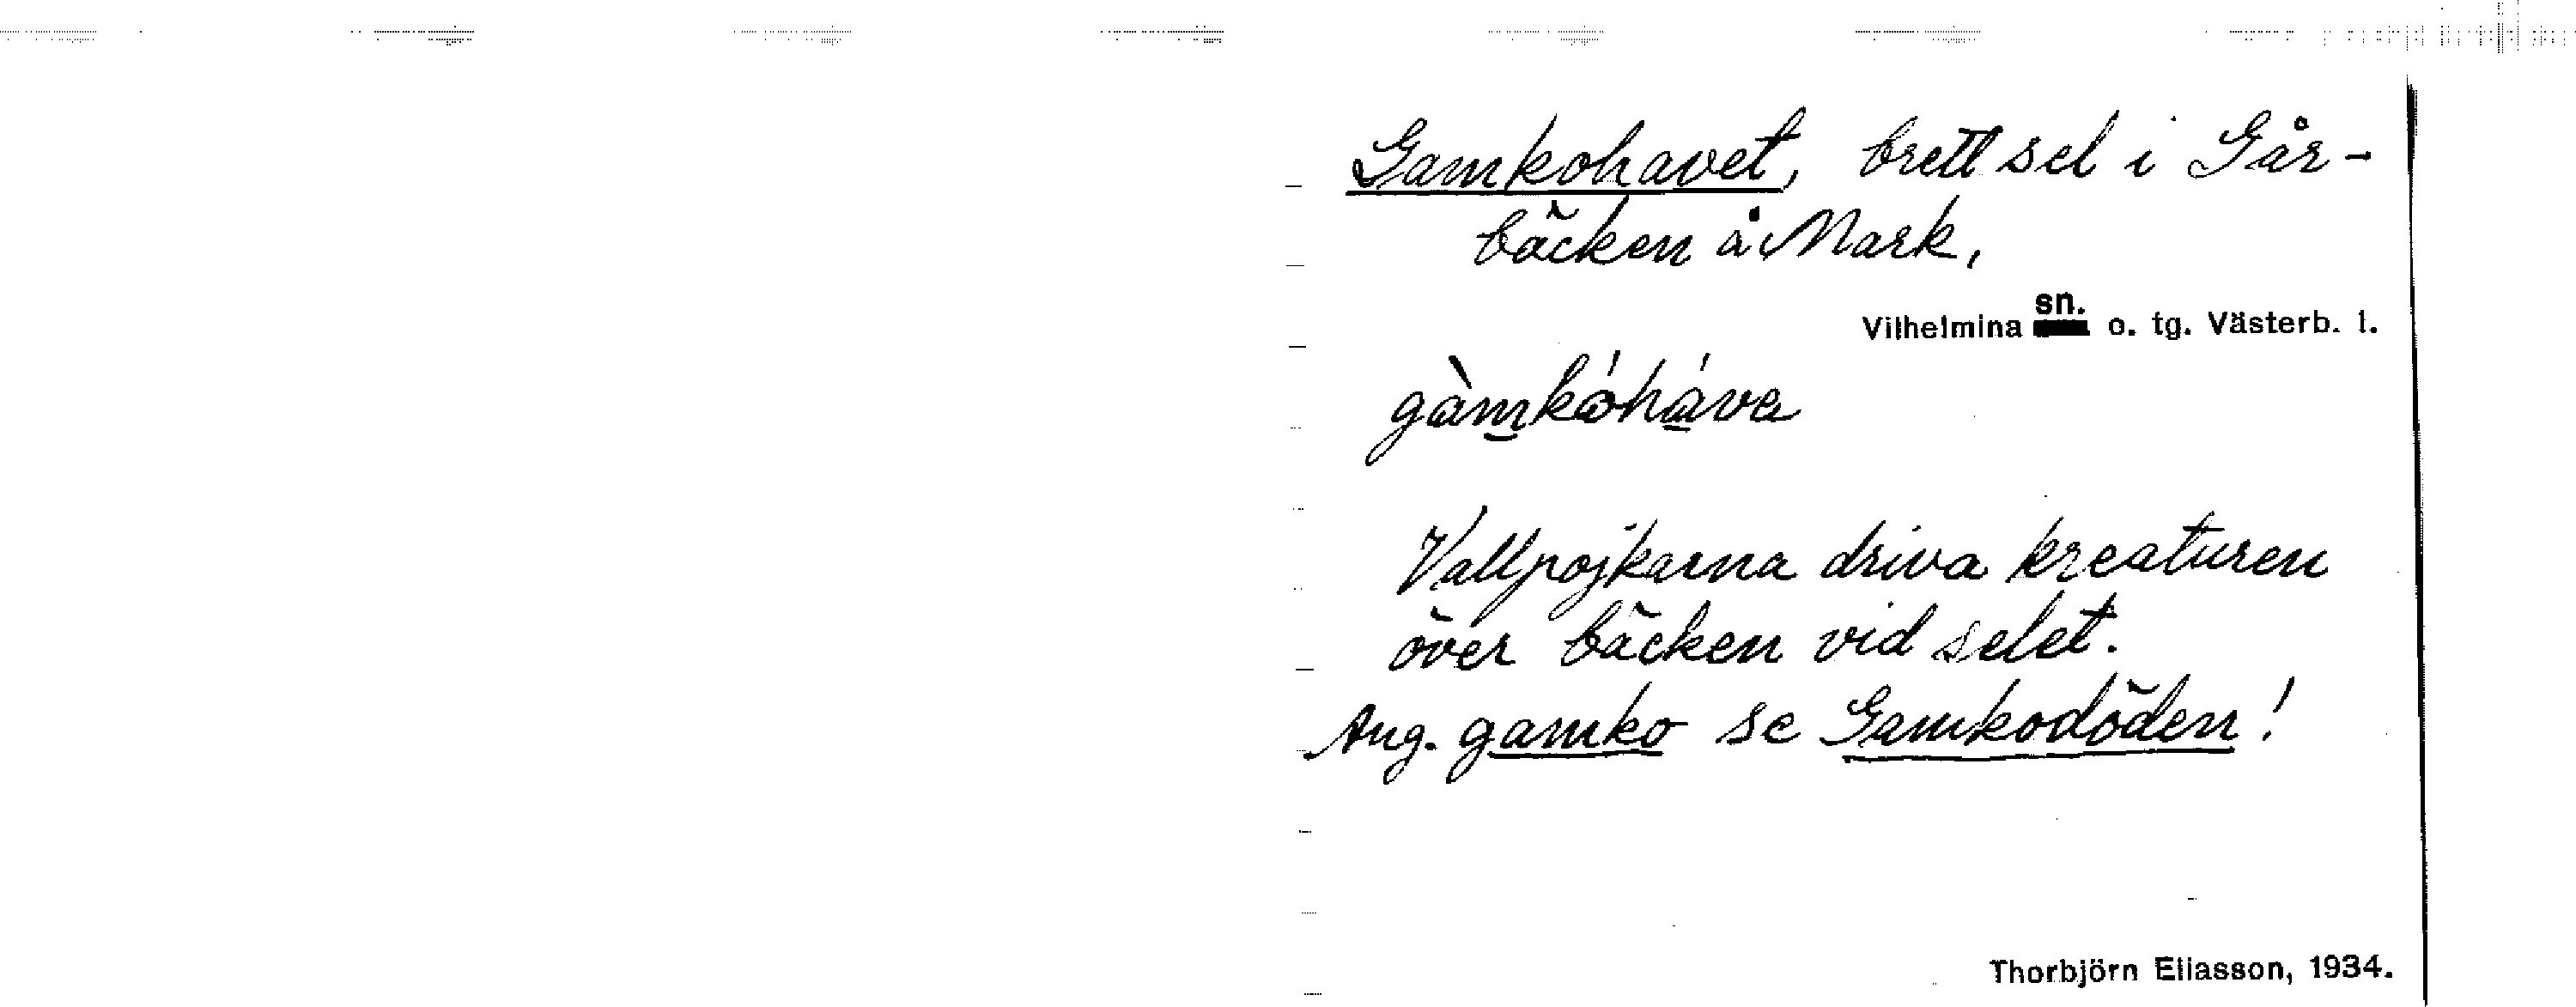 Gamkohavet, brett sel i Går-
bäcken å Mark,
Vilhelmina sn. o. tg. Västerb. l.
gàmkóháva
Vallpojkarna driva kreaturen
över bäcken vid selet.
Ang. gamko se Gamkodöden!
Thorbjörn Eliasson, 1934.